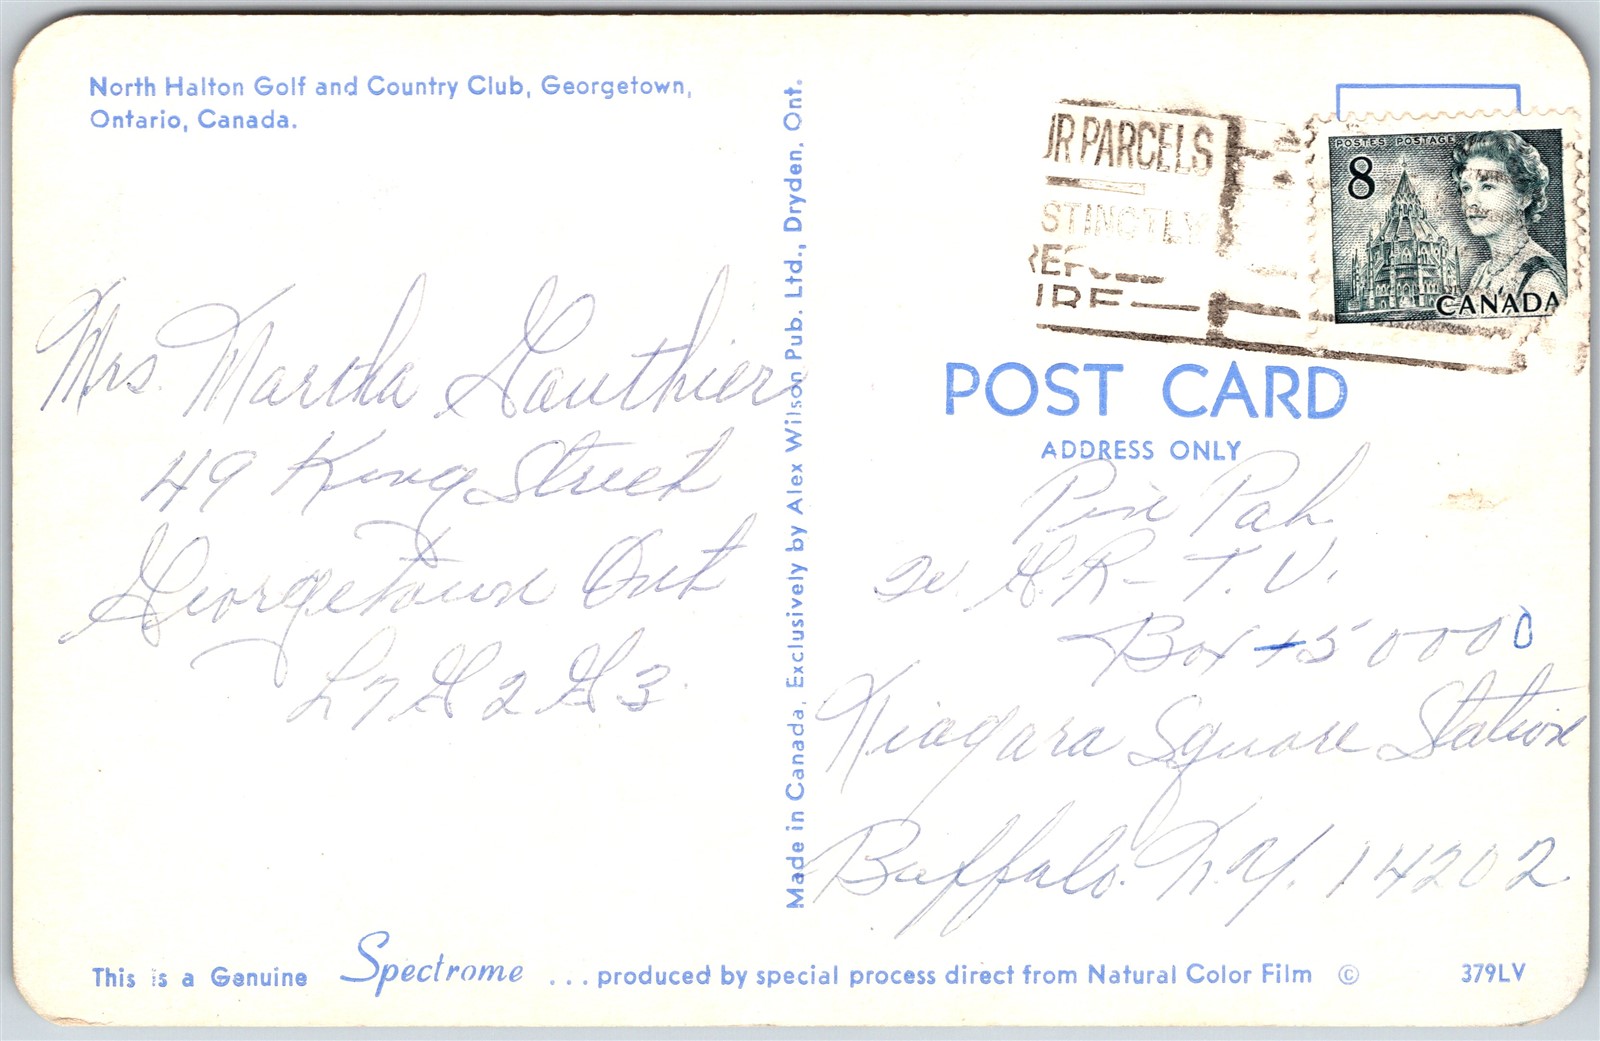 North Halton Golf and Country Club, Georgetown,
Ontario, Canada.
Mrs. Martha Gauthier
49 King Street
Georgetown Ont
L7G 2G3
Made in Canada, Exclusively by Alex Wilson Pub. Ltd., Dryden, Ont.
UR PARCELS
STINCTLY
POSTES POSTAGE
8
CANADA
POST CARD
ADDRESS ONLY
Pah
G.R-T.V.
Box 50000
Niagara Square Station
Buffalo. N.Y. 14202
This is a Genuine Spectrome ... produced by special process direct from Natural Color Film © 379LV